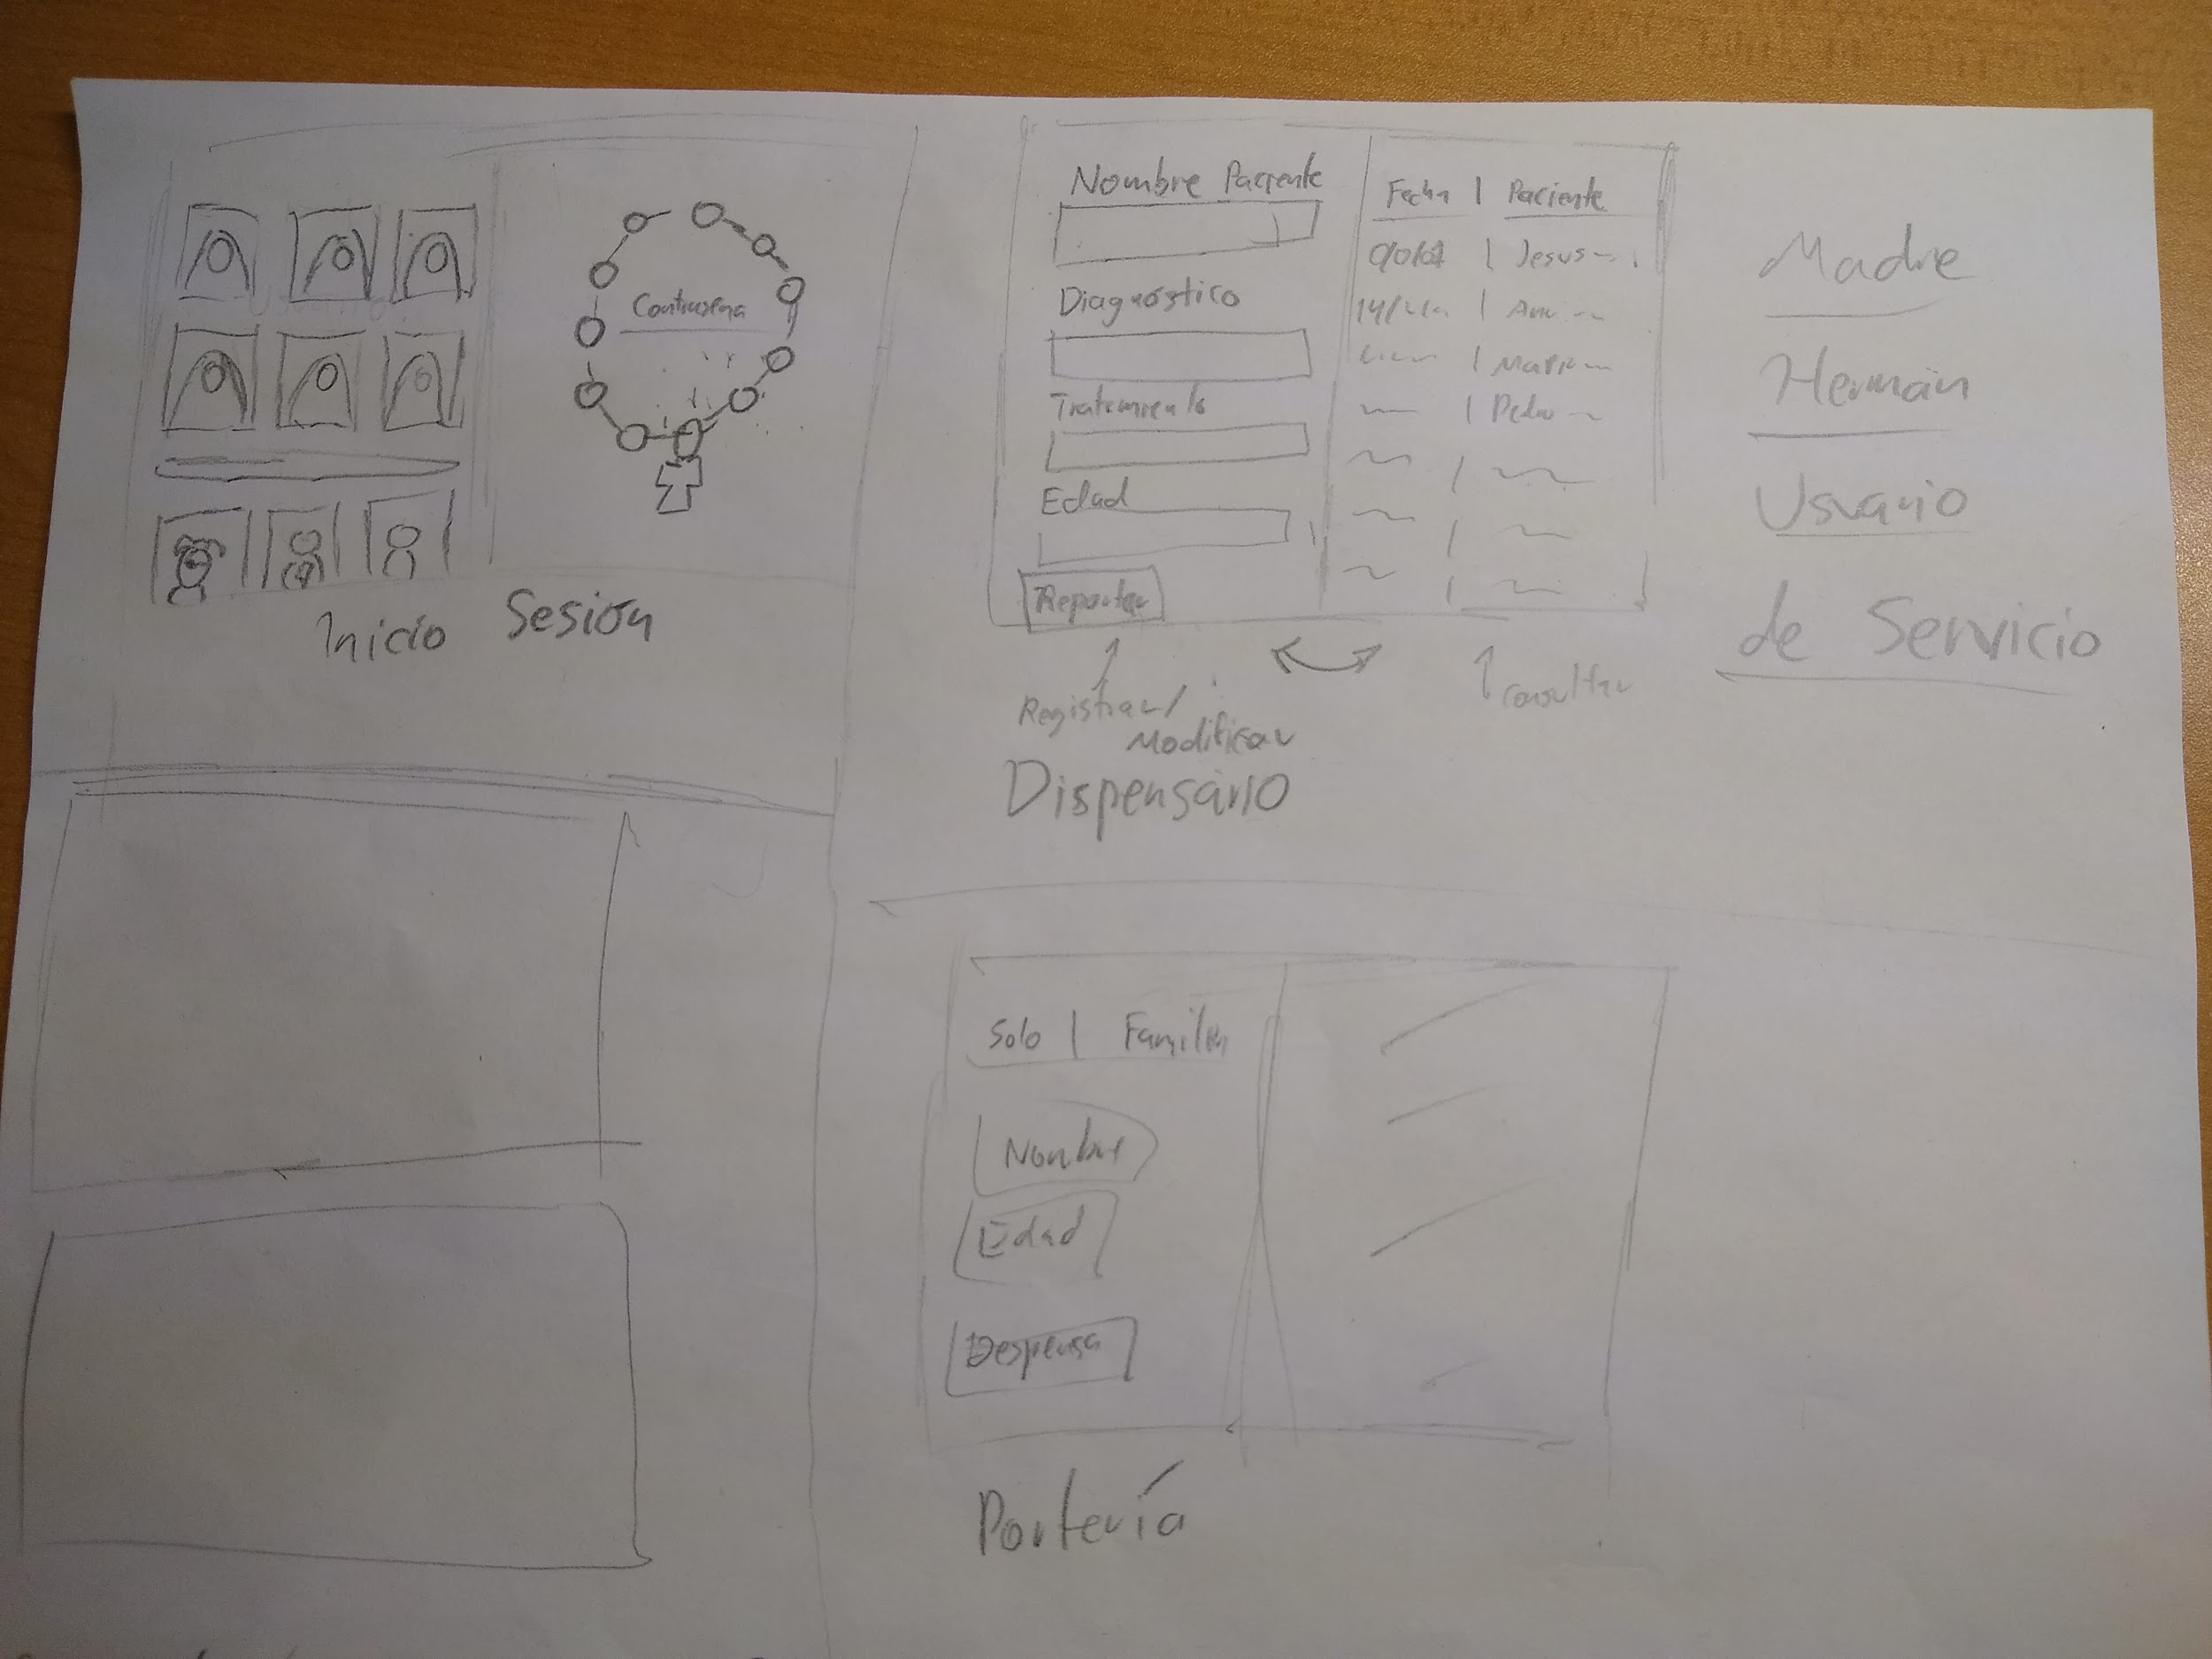 Contraseña
Inicio Sesión
Nombre Paciente
Diagnóstico
Tratamiento
Edad
Reportar
Fecha | Paciente
| Jesus
14/
| Ana
| Mari
| Pedro
Registrar/
Modificar
Consultar
Dispensario
Madre
Herman
Usuario
de Servicio
Solo | Familia
Nombre
Edad
Despensa
Portería